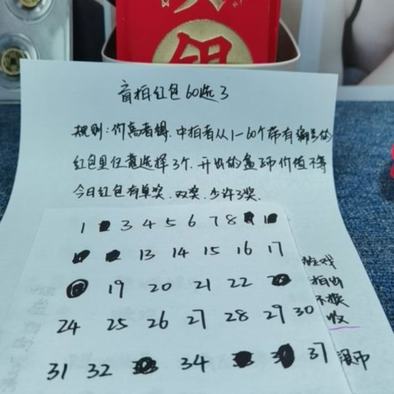 盲拍红包60选3
规则:价高者得.中拍者从1—60个带有编号的
红包里任意选择3个.开出的盒币价值不等
今日红包有单奖.双奖.少许3奖
1 3 4 5 6 7 8
13 14 15 16 17
19 20 21 22
24 25 26 27 28 29 30
31 32 34 37
游戏
拍出
不撤
收
银币